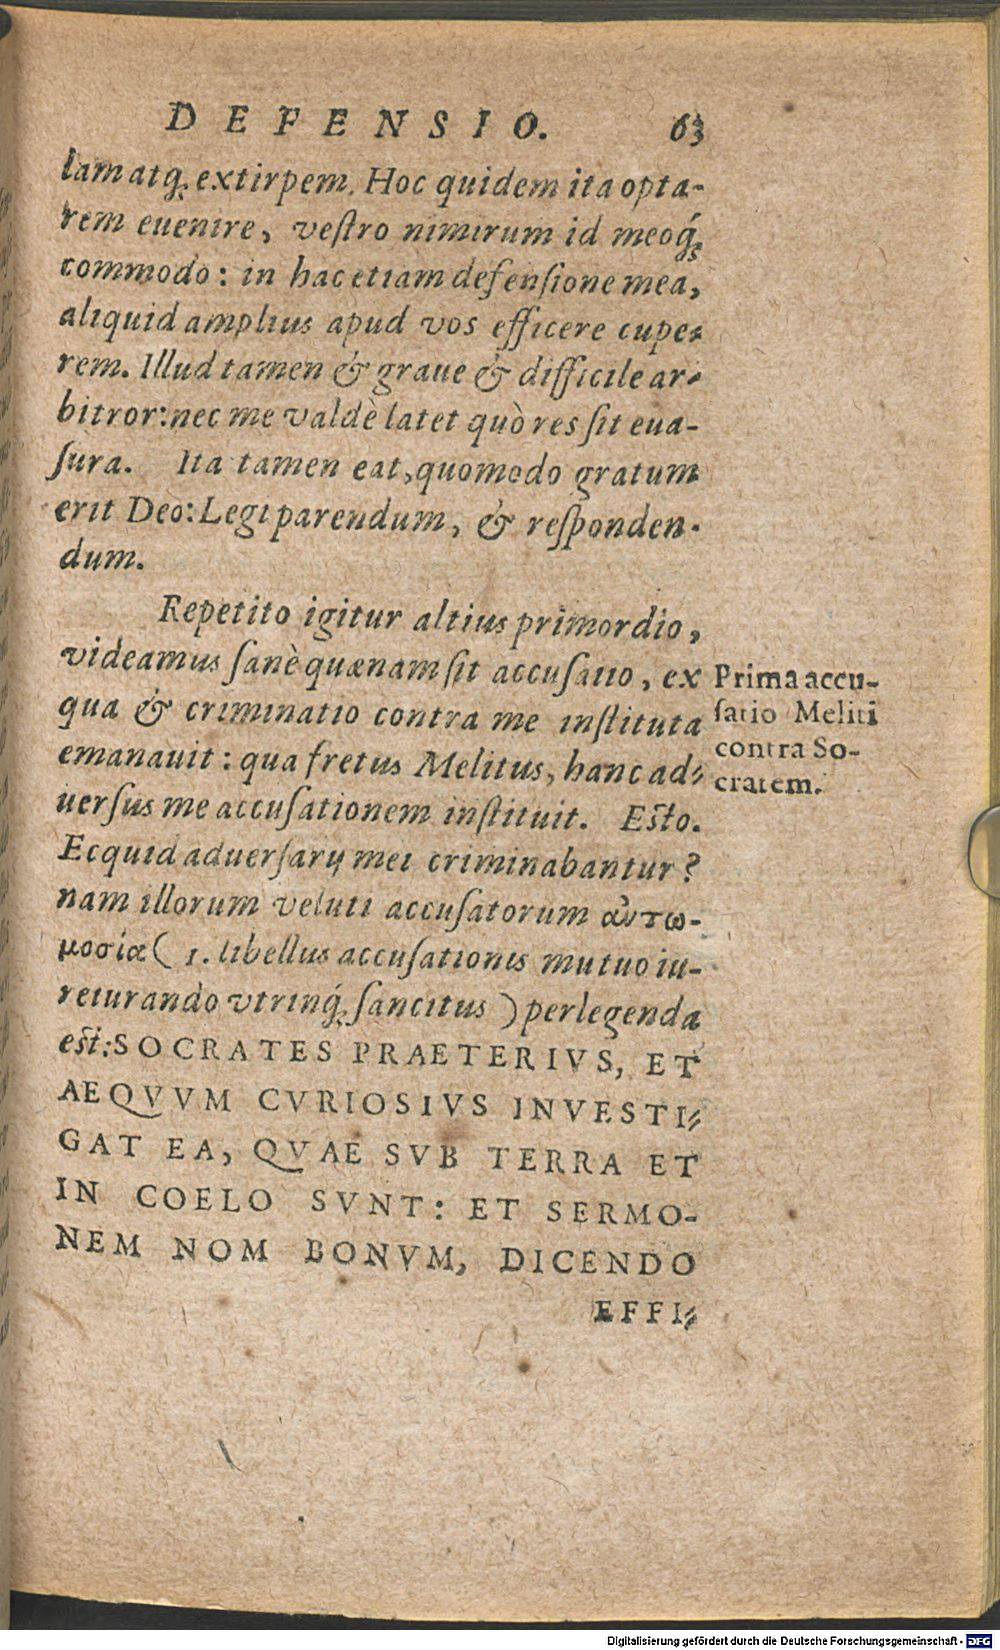 DEFENSIO. 63
lam atq́; extirpem. Hoc quidem ita opta-
rem euenire, veſtro nimirum id meoq́;
commodo: in hac etiam defenſione mea,
aliquid amplius apud vos efficere cupe-
rem. Illud tamen & graue & difficile ar-
bitror: nec me valdè latet quò res ſit eua-
ſura. Ita tamen eat, quomodo gratum
erit Deo: Legi parendum, & reſponden-
dum.
Repetito igitur altius primordio,
videamus ſanè quænam ſit accuſatio, ex
qua & criminatio contra me inſtituta
emanauit: qua fretus Melitus, hanc ad-
uerſus me accuſationem inſtituit. Eſto.
Ecquid aduerſarij mei criminabantur?
nam illorum veluti accuſatorum αὐτω-
μοσία ( 1. libellus accuſationis mutuo iu-
reiurando vtrinq́; ſancitus ) perlegenda
eſt: SOCRATES PRAETERIVS, ET
AEQVVM CVRIOSIVS INVESTI-
GAT EA, QVAE SVB TERRA ET
IN COELO SVNT: ET SERMO-
NEM NOM BONVM, DICENDO
EFFI-
Prima accu-
ſatio Meliti
contra So-
cratem.
Digitalisierung gefördert durch die Deutsche Forschungsgemeinschaft - DFG